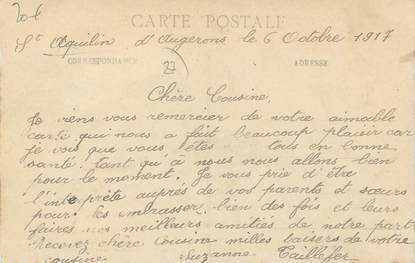 20 €
CARTE POSTALE
St Aquilin d'Augerons le 6 Octobre 1917
CORRESPONDANCE ADRESSE
27
Chère Cousine,
Je viens vous remercier de votre aimable
carte qui nous a fait beaucoup plaisir car
je vois que vous êtes tous en bonne
santé. tant qu'à nous nous allons bien
pour le moment. Je vous prie d'être
l'interprète auprès de vos parents et sœurs
pour les embrasser bien des fois et leurs
faires nos meilleurs amitiés de notre part
Recevez chère cousine milles baisers de votre
cousine Suzanne Taillefer